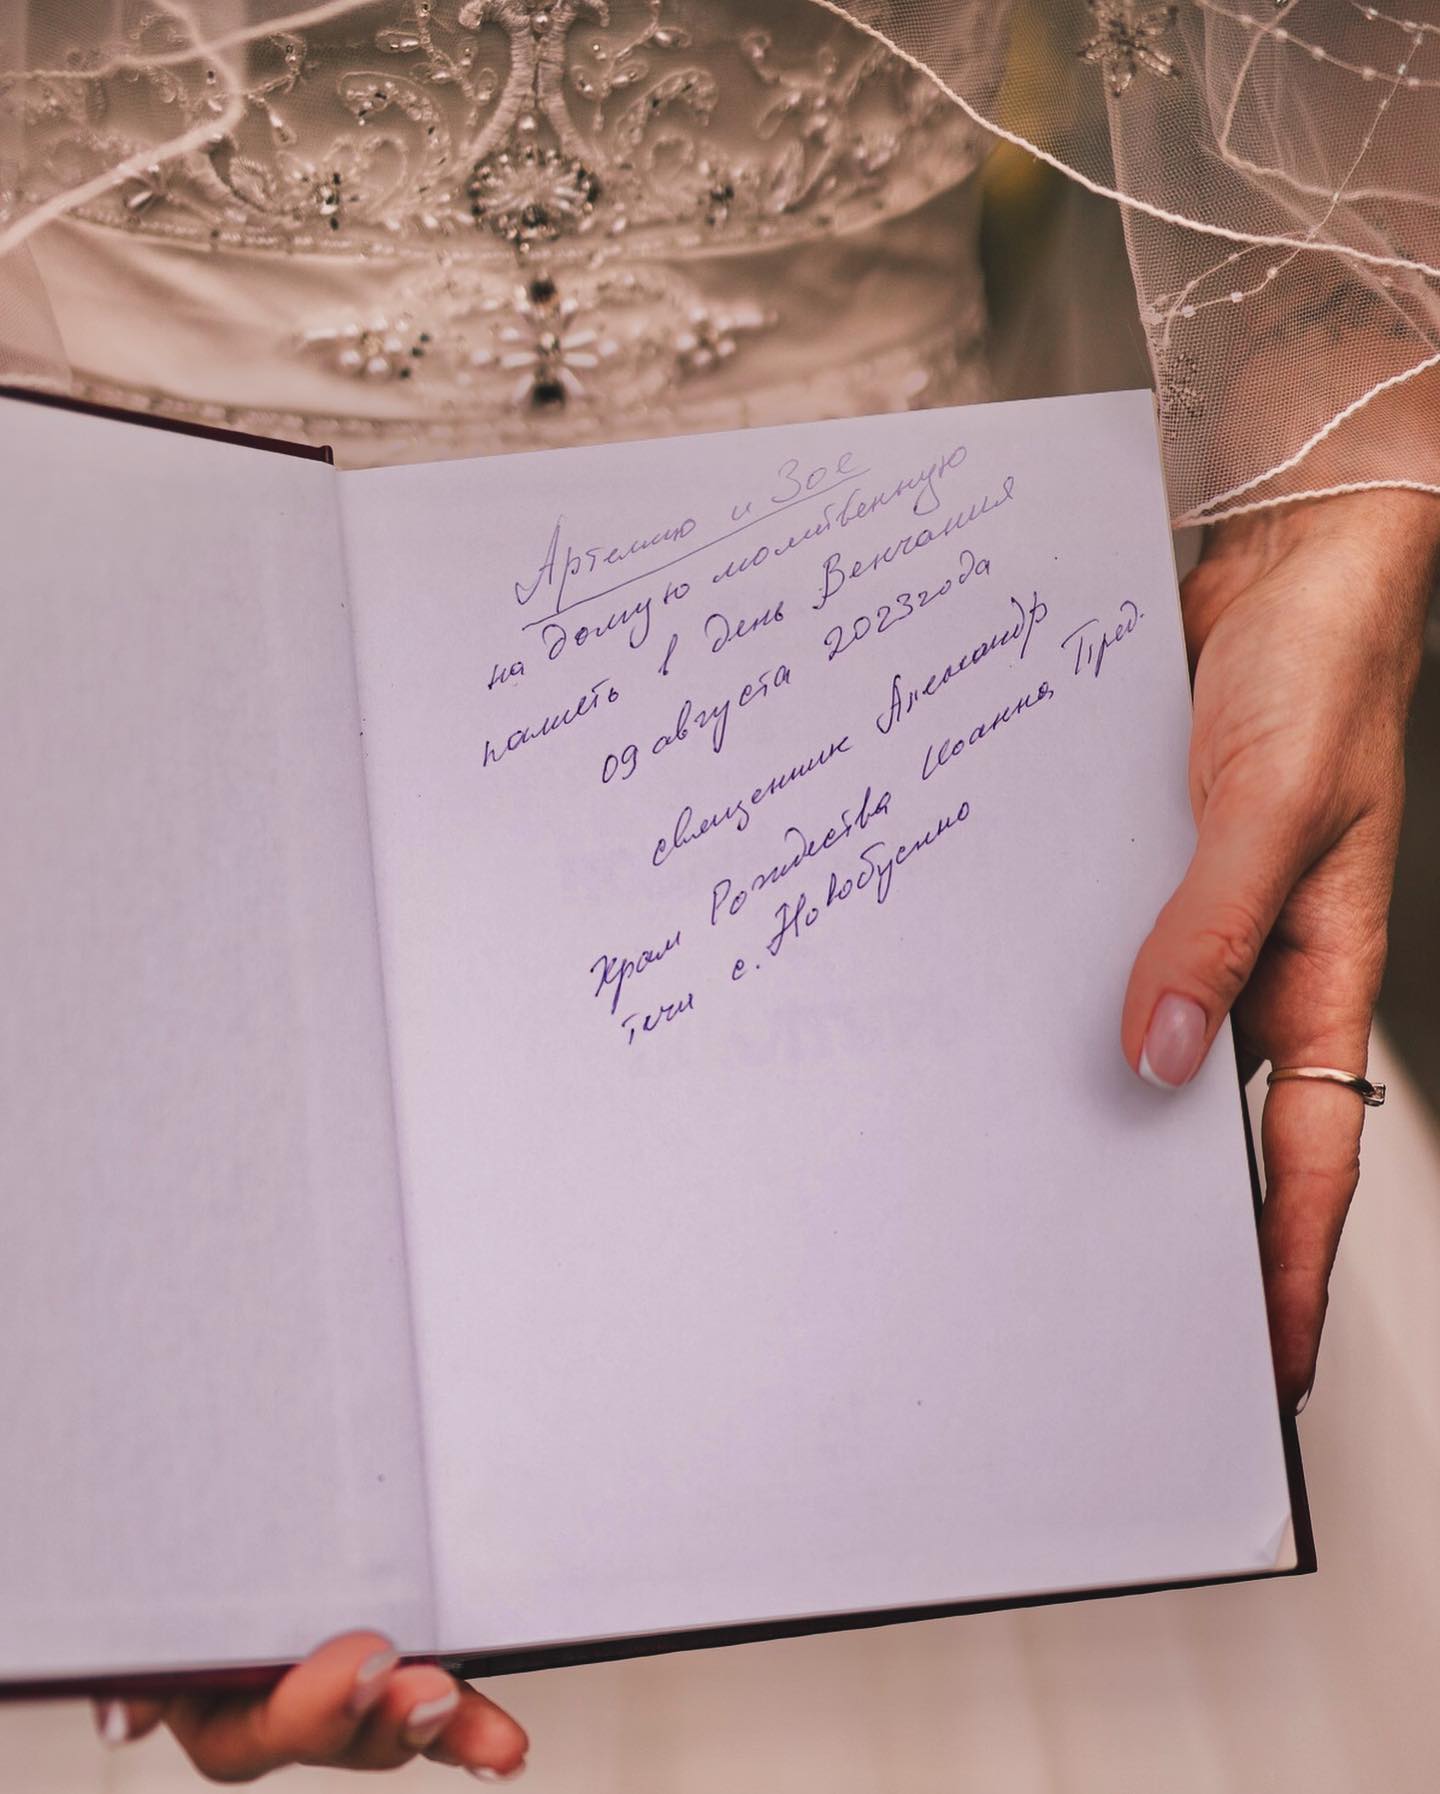 Артемию и Зое
на долгую молитвенную
память в день Венчания
09 августа 2023 года
священник Александр
Храм Рождества Иоанна Пред.
течи с. Новобусино